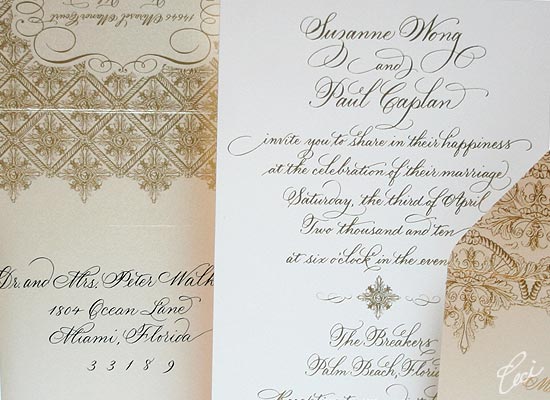 14646 Mirasol Manor Court
Suzanne Wong
and
Paul Caplan
invite you to share in their happiness
at the celebration of their marriage
Saturday, the third of April
Two thousand and ten
at six o'clock in the even
The Breakers
Palm Beach, Florid
Reception to
Dr. and Mrs. Peter Walk
1804 Ocean Lane
Miami, Florida
33189
Ceci